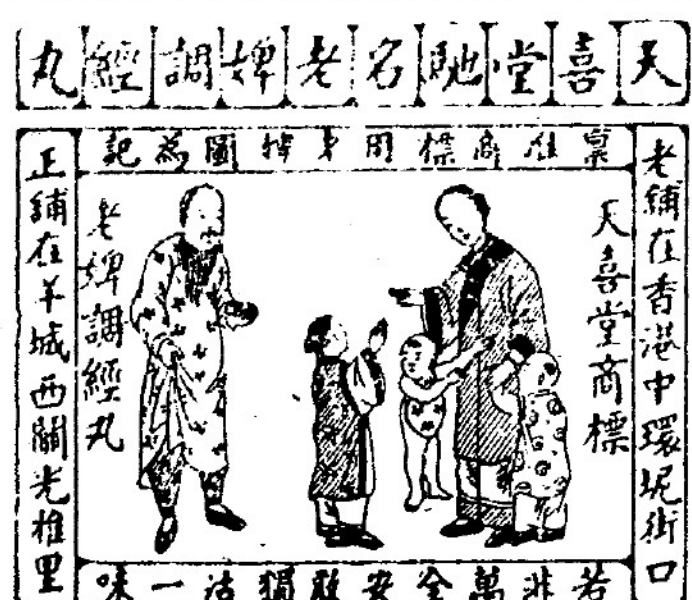 天喜堂馳名老婢調經丸
稟准商標用婢圖為記
老鋪在香港中環坭街口
天喜堂商標
老婢調經丸
正鋪在羊城西關光雅里
若非萬全安 一味